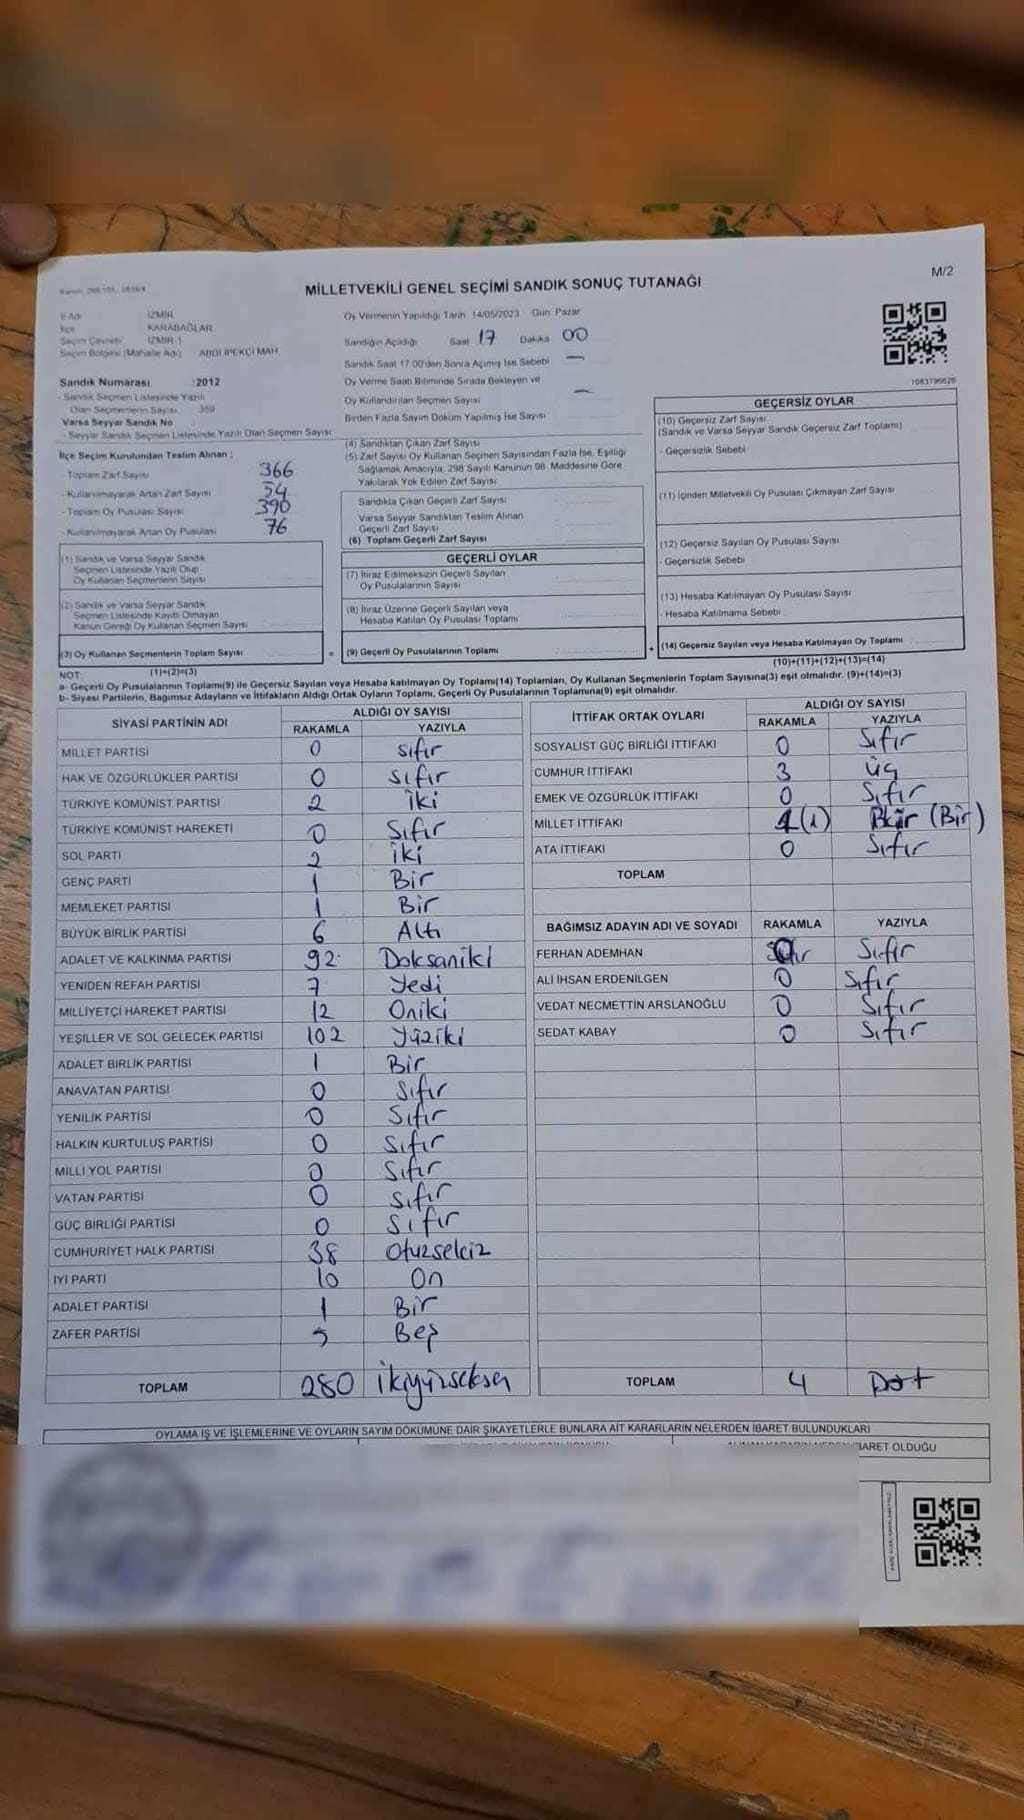 M/2
MİLLETVEKİLİ GENEL SEÇİMİ SANDIK SONUÇ TUTANAĞI
İl Adı İZMİR
İlçe KARABAĞLAR
Seçim Çevresi İZMİR-1
Seçim Bölgesi (Mahalle Adı) ABDİ İPEKÇİ MAH
Sandık Numarası : 2012
- Sandık Seçmen Listesinde Yazılı
Olan Seçmenlerin Sayısı 359
Varsa Seyyar Sandık No
- Seyyar Sandık Seçmen Listesinde Yazılı Olan Seçmen Sayısı
İlçe Seçim Kurulundan Teslim Alınan :
- Toplam Zarf Sayısı 366
- Kullanılmayarak Artan Zarf Sayısı 54
- Toplam Oy Pusulası Sayısı 390
- Kullanılmayarak Artan Oy Pusulası 76
(1) Sandık ve Varsa Seyyar Sandık
Seçmen Listesinde Yazılı Olup
Oy Kullanan Seçmenlerin Sayısı
(2) Sandık ve Varsa Seyyar Sandık
Seçmen Listesinde Kayıtlı Olmayan
Kanun Gereği Oy Kullanan Seçmen Sayısı
(3) Oy Kullanan Seçmenlerin Toplam Sayısı
(1)+(2)=(3)
Oy Vermenin Yapıldığı Tarih 14/05/2023 Gün Pazar
Sandığın Açıldığı Saat 17 Dakika 00
Sandık Saat 17 00'den Sonra Açımış İse Sebebi —
Oy Verme Saati Bitiminde Sırada Bekleyen ve
Oy Kullandırılan Seçmen Sayısı —
Birden Fazla Sayım Döküm Yapılmış İse Sayısı
(4) Sandıktan Çıkan Zarf Sayısı
(5) Zarf Sayısı Oy Kullanan Seçmen Sayısından Fazla İse, Eşitliği
Sağlamak Amacıyla, 298 Sayılı Kanunun 98. Maddesine Göre
Yakılarak Yok Edilen Zarf Sayısı
Sandıkta Çıkan Geçerli Zarf Sayısı
Varsa Seyyar Sandıktan Teslim Alınan
Geçerli Zarf Sayısı
(6) Toplam Geçerli Zarf Sayısı
GEÇERLİ OYLAR
(7) İtiraz Edilmeksizin Geçerli Sayılan
Oy Pusulalarının Sayısı
(8) İtiraz Üzerine Geçerli Sayılan veya
Hesaba Katılan Oy Pusulası Toplamı
= (9) Geçerli Oy Pusulalarının Toplamı +
1083796626
GEÇERSİZ OYLAR
(10) Geçersiz Zarf Sayısı
(Sandık ve Varsa Seyyar Sandık Geçersiz Zarf Toplamı)
- Geçersizlik Sebebi
(11) İçinden Milletvekili Oy Pusulası Çıkmayan Zarf Sayısı
(12) Geçersiz Sayılan Oy Pusulası Sayısı
- Geçersizlik Sebebi
(13) Hesaba Katılmayan Oy Pusulası Sayısı
- Hesaba Katılmama Sebebi
(14) Geçersiz Sayılan veya Hesaba Katılmayan Oy Toplamı
(10)+(11)+(12)+(13)=(14)
NOT:
a- Geçerli Oy Pusulalarının Toplamı(9) ile Geçersiz Sayılan veya Hesaba katılmayan Oy Toplamı(14) Toplamları, Oy Kullanan Seçmenlerin Toplam Sayısına(3) eşit olmalıdır. (9)+(14)=(3)
b- Siyasi Partilerin, Bağımsız Adayların ve İttifakların Aldığı Ortak Oyların Toplamı, Geçerli Oy Pusulalarının Toplamına(9) eşit olmalıdır.
SİYASİ PARTİNİN ADI ALDIĞI OY SAYISI
RAKAMLA YAZIYLA
MİLLET PARTİSİ 0 Sıfır
HAK VE ÖZGÜRLÜKLER PARTİSİ 0 Sıfır
TÜRKİYE KOMÜNİST PARTİSİ 2 İki
TÜRKİYE KOMÜNİST HAREKETİ 0 Sıfır
SOL PARTİ 2 İki
GENÇ PARTİ 1 Bir
MEMLEKET PARTİSİ 1 Bir
BÜYÜK BİRLİK PARTİSİ 6 Altı
ADALET VE KALKINMA PARTİSİ 92 Doksaniki
YENİDEN REFAH PARTİSİ 7 Yedi
MİLLİYETÇİ HAREKET PARTİSİ 12 Oniki
YEŞİLLER VE SOL GELECEK PARTİSİ 102 Yüziki
ADALET BİRLİK PARTİSİ 1 Bir
ANAVATAN PARTİSİ 0 Sıfır
YENİLİK PARTİSİ 0 Sıfır
HALKIN KURTULUŞ PARTİSİ 0 Sıfır
MİLLİ YOL PARTİSİ 0 Sıfır
VATAN PARTİSİ 0 Sıfır
GÜÇ BİRLİĞİ PARTİSİ 0 Sıfır
CUMHURİYET HALK PARTİSİ 38 Otuzsekiz
İYİ PARTİ 10 On
ADALET PARTİSİ 1 Bir
ZAFER PARTİSİ 5 Beş
TOPLAM 280 İkiyüzseksen
İTTİFAK ORTAK OYLARI ALDIĞI OY SAYISI
RAKAMLA YAZIYLA
SOSYALİST GÜÇ BİRLİĞİ İTTİFAKI 0 Sıfır
CUMHUR İTTİFAKI 3 Üç
EMEK VE ÖZGÜRLÜK İTTİFAKI 0 Sıfır
MİLLET İTTİFAKI 1 (1) Bir (Bir)
ATA İTTİFAKI 0 Sıfır
TOPLAM
BAĞIMSIZ ADAYIN ADI VE SOYADI RAKAMLA YAZIYLA
FERHAN ADEMHAN 0 Sıfır
ALİ İHSAN ERDENİLGEN 0 Sıfır
VEDAT NECMETTİN ARSLANOĞLU 0 Sıfır
SEDAT KABAY 0 Sıfır
TOPLAM 4 Dört
OYLAMA İŞ VE İŞLEMLERİNE VE OYLARIN SAYIM DÖKÜMÜNE DAİR ŞİKAYETLERLE BUNLARA AİT KARARLARIN NELERDEN İBARET BULUNDUKLARI
İBARET OLDUĞU